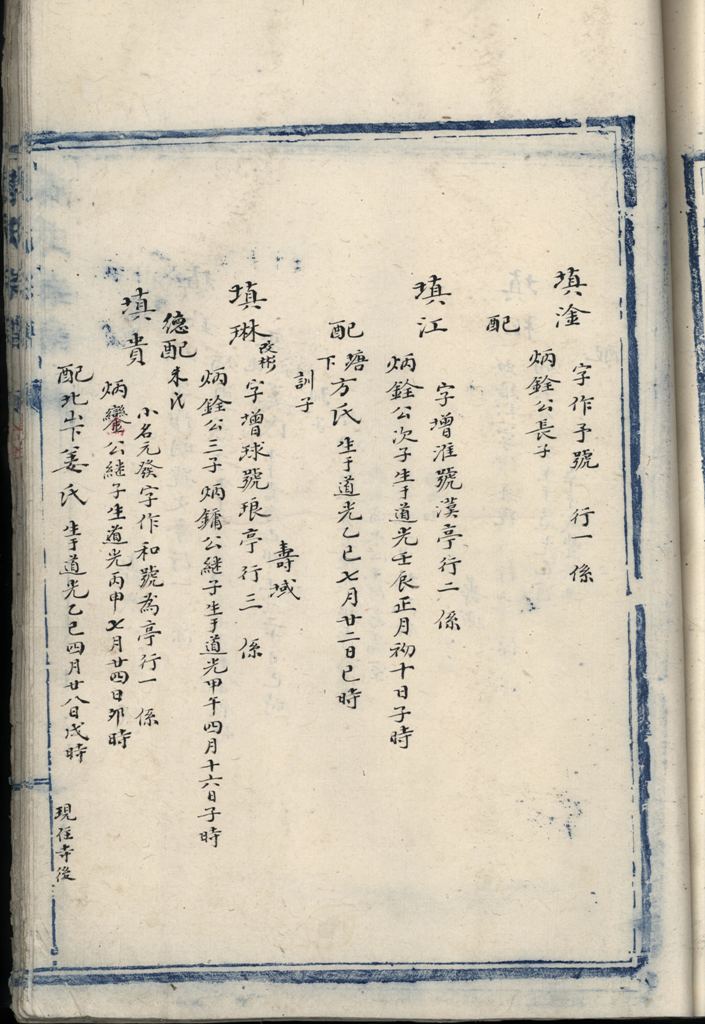 填淦 字作予號 行一 係
炳銓公長子
配
填江 字增淮號漢亭行二 係
炳銓公次子生于道光壬辰正月初十日子時
配塘下方氏生于道光乙巳七月廿二日巳時
訓子
壽域
填琳改彬 字增球號琅亭行三 係
炳銓公三子炳鏞公継子生于道光甲午四月十六日子時
德配朱氏
填貴 小名元發字作和號為亭行一 係
炳鑾公継子生道光丙申七月廿四日卯時
配北山下姜氏生于道光乙巳四月廿八日戌時
現在寺後